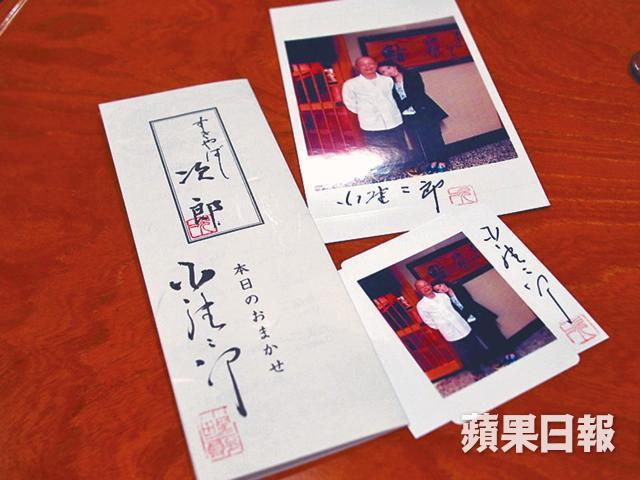 すきやばし
次郎
本日のおまかせ
小野二郎
小野二郎
小野二郎
蘋果日報